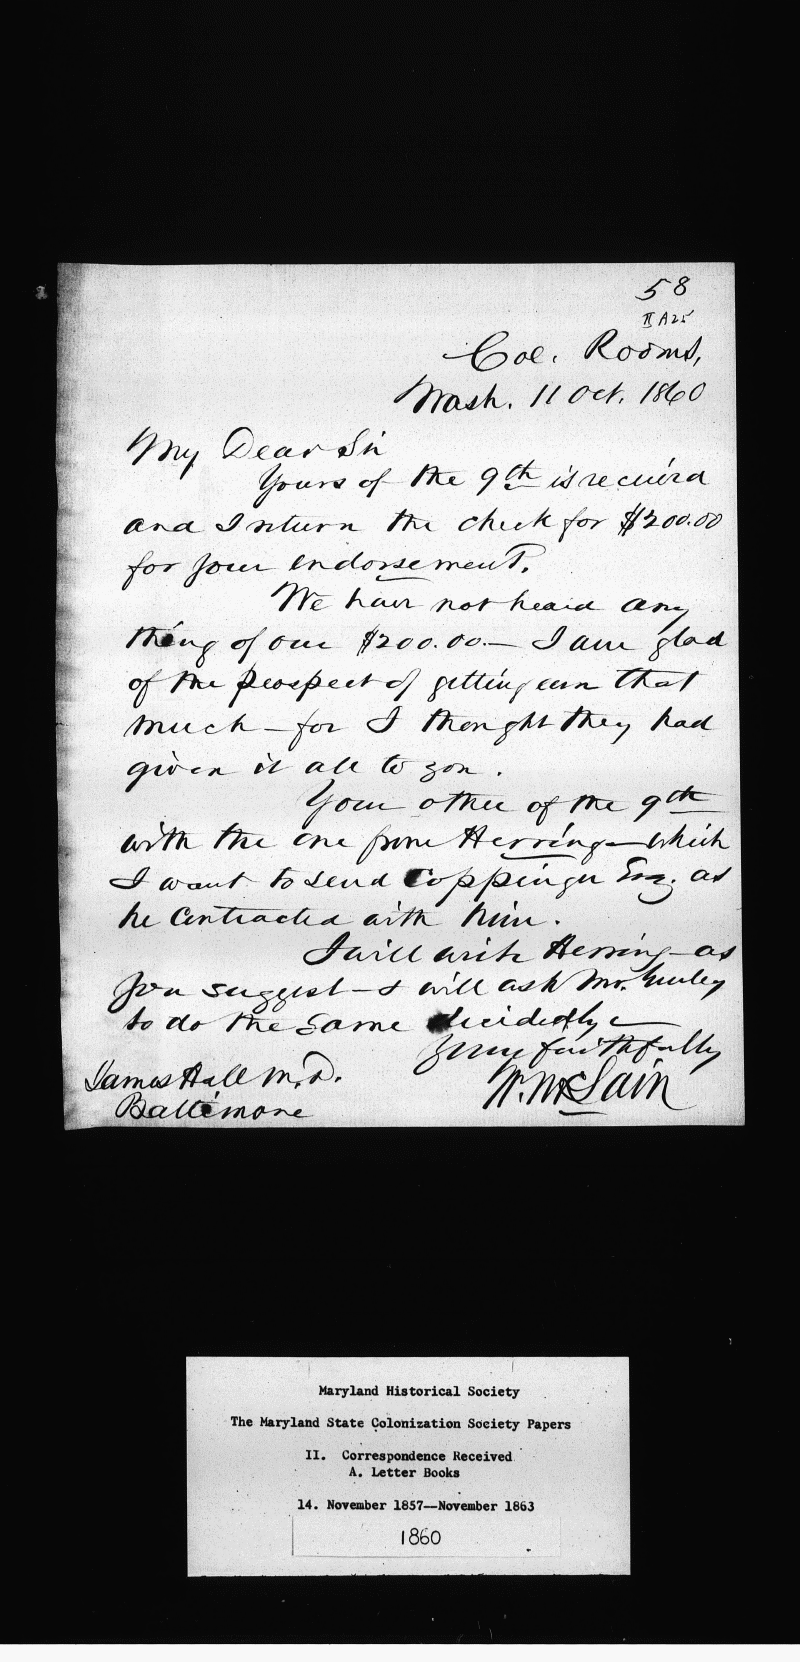 58
II A25
Col. Rooms,
Wash. 11 Oct. 1860
My Dear Sir
Yours of the 9th is received
and I return the check for $200.00
for your endorsement.
We have not heard any
thing of our $200.00.— I am glad
of the prospect of getting even that
much—for I thought they had
given it all to you.
Your other of the 9th
with the one from Herring—which
I want to send Coppinger Esq. as
he contracted with him.
I will write Herring—as
you suggest—& will ask Mr. Gurley
to do the same decidedly—
Yours faithfully
W. McLain
James Hall M.D.
Baltimore
Maryland Historical Society
The Maryland State Colonization Society Papers
II. Correspondence Received
A. Letter Books
14. November 1857--November 1863
1860